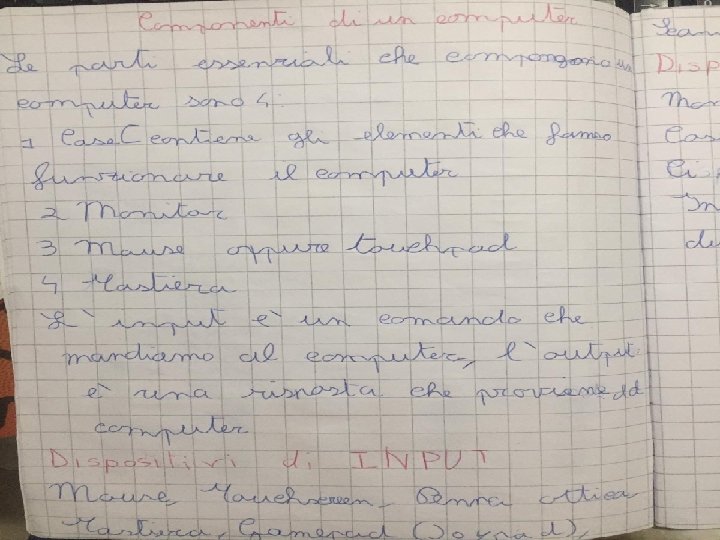 Componenti di un computer
Le parti essenziali che compongono un
computer sono 4:
1 Case (contiene gli elementi che fanno
funzionare il computer
2 Monitor
3 Mause oppure touchpad
4 Tastiera
L'input è un comando che
mandiamo al computer, l'output
è una risposta che proviene dal
computer
Dispositivi di INPUT
Mouse, Touchscreen, Penna ottica
Tastiera, Gamepad (Joypad),
Scan
Disp
Mon
Cas
Ci
In
du